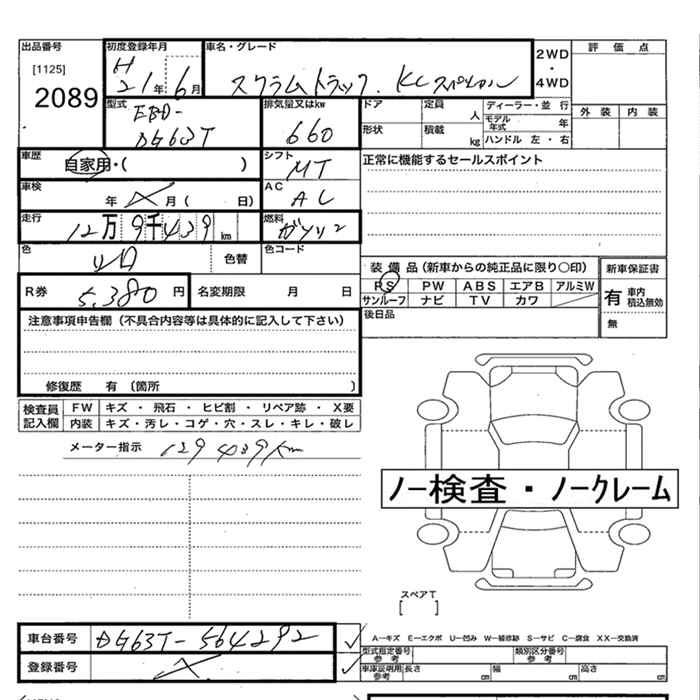 出品番号
[1125]
2089
初度登録年月
H
21年 6月
車名・グレード
スクラムトラック. KCスペシャル
2WD
・
4WD
評 価 点
外 装 内 装
型式
EBD-
DG63T
排気量又はkw
660
ドア
定員
人
ディーラー・並 行
モデル年式
年
形状
積載
kg
ハンドル 左・右
車歴
自家用・( )
シフト
MT
正常に機能するセールスポイント
車検
年 月( 日)
AC
AC
走行
12万9千439km
燃料
ガソリン
色
色替
色コード
装 備 品 (新車からの純正品に限り〇印)
新車保証書
PS PW ABS エアB アルミW
サンルーフ ナビ TV カワ
有 車内積込無効
無
R券
5,380 円
名変期限 月 日
後日品
注意事項申告欄 (不具合内容等は具体的に記入して下さい)
修復歴 有 〔箇所 〕
検査員記入欄
FW キズ ・ 飛石 ・ ヒビ割 ・ リペア跡 ・ X要
内装 キズ・汚レ・コゲ・穴・スレ・キレ・破レ
メーター指示 129439km
ノー検査・ノークレーム
スペアT
[ ]
車台番号 DG63T-564292
登録番号
A－キズ E－エクボ U－凹み W－補修跡 S－サビ C－腐食 XX－交換済
型式指定番号
参考
類別区分番号
参考
車庫証明用
参考
長さ cm 幅 cm 高さ cm